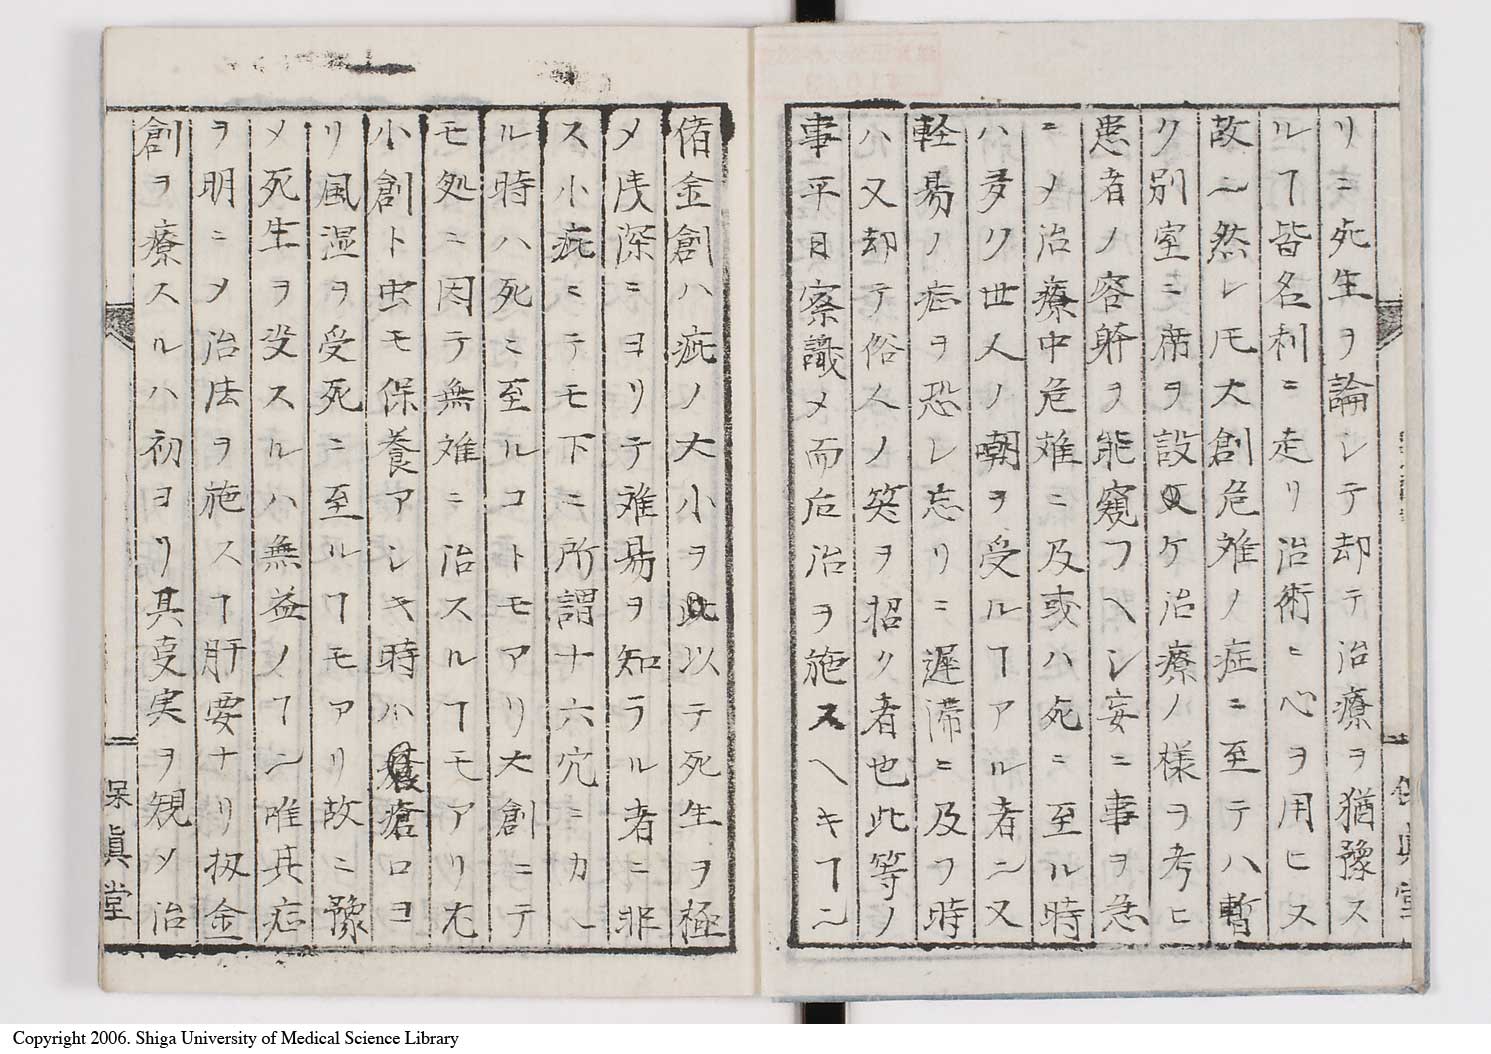 リニ死生ヲ論レテ却テ治療ヲ猶豫ス
ルヿ皆名利ニ走リ治術ニ心ヲ用ヒス
故ニ然レ𪜈大創危難ノ症ニ至テハ暫
ク別室ニ席ヲ設ケ治療ノ様ヲ考ヒ
患者ノ容躰ヲ能窺フヘシ妄ニ事ヲ急
ニメ治療中危難ニ及或ハ死ニ至ル時
ハ多ク世人ノ嘲ヲ受ルヿアル者ニ又
軽易ノ症ヲ恐レ忘リニ遅滞ニ及フ時
ハ又却テ俗人ノ笑ヲ招ク者也此等ノ
事平日察識メ而后治ヲ施スヘキヿニ
偖金創ハ疵ノ大小ヲ以テ死生ヲ極
メ浅深ニヨリテ難易ヲ知ラル者ニ非
ス小疵ニテモ下ニ所謂十六穴ニカヽ
ル時ハ死ニ至ルコトモアリ大創ニテ
モ処ニ因テ無難ニ治スルヿモアリ尤
小創ト虫モ保養アシキ時ハ瘡口ヨ
リ風湿ヲ受死ニ至ルヿモアリ故ニ豫
メ死生ヲ決スルハ無益ノヿニ唯其症
ヲ明ニメ治法ヲ施スヿ肝要ナリ扨金
創ヲ療スルハ初ヨリ其変実ヲ観メ治
眞堂